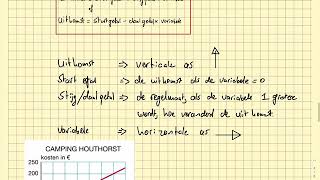 of
Uitkomst = startgetal - daalgetal x variabele
Uitkomst => verticale as
Start getal => de uitkomst als de variabele = 0
Stijg/daalgetal => de regelmaat, als de variabele 1 groter
wordt, hoe veranderd de uitkomst
Variabele => horizontale as
CAMPING HOUTHORST
kosten in €
250
200